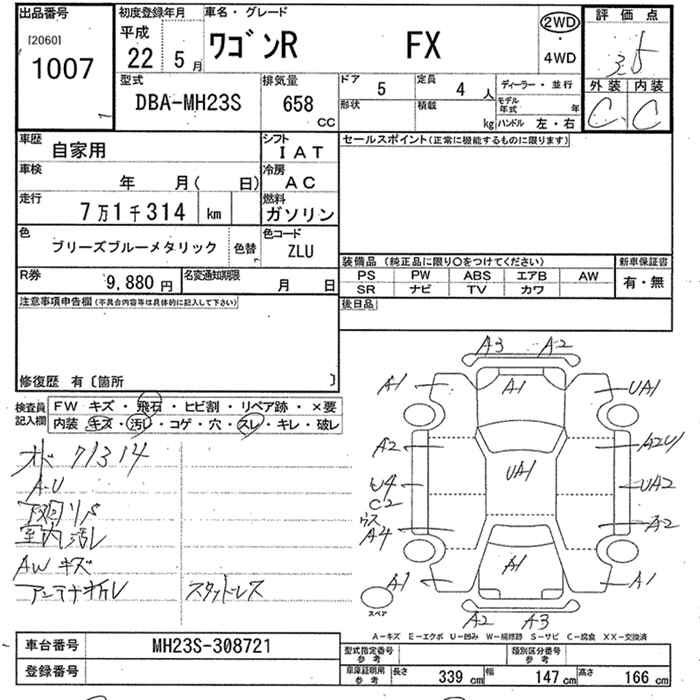 出品番号
[2060]
1007
初度登録年月
平成
22 5 月
車名・グレード
ワゴンR FX
2WD
4WD
評価点
3.5
外装 内装
C C
型式
DBA-MH23S
排気量
658
CC
ドア 5
形状
定員 4 人
積載 kg
ディーラー・並行
モデル年式 年
ハンドル 左・右
車歴
自家用
シフト
IAT
セールスポイント(正常に機能するものに限ります)
車検
年 月( 日)
冷房
AC
走行
7万1千314 km
燃料
ガソリン
色
ブリーズブルーメタリック
色替
色コード
ZLU
装備品 (純正品に限り○をつけてください)
PS PW ABS エアB AW
SR ナビ TV カワ
新車保証書
有・無
R券
9,880 円
名変通知期限
月 日
後日品
注意事項申告欄(不具合内容等は具体的に記入して下さい)
修復歴 有〔箇所 〕
検査員記入欄
FW キズ・飛石・ヒビ割・リペア跡・×要
内装 キズ・汚レ・コゲ・穴・スレ・キレ・破レ
71314
A-U
室内汚レ
AWキズ
アンテナ折レ
スタッドレス
A3 A2
A1 A1 UA1
A2 A2U
UA1
U4 UA2
C2
A4 A2
A1 A1 A1
スペア
A2 A3
A-キズ E-エクボ U-凹み W-補修跡 S-サビ C-腐食 XX-交換済
車台番号
MH23S-308721
登録番号
型式指定番号 参考
類別区分番号 参考
車庫証明用 参考
長さ 339 cm 幅 147 cm 高さ 166 cm